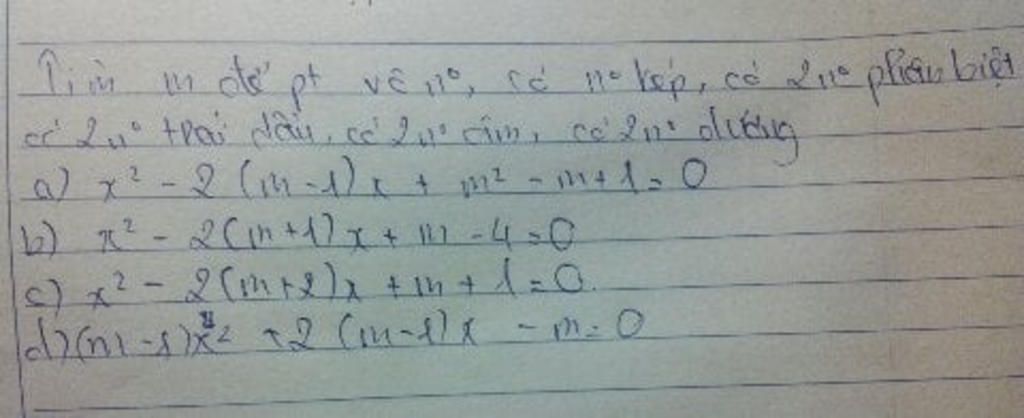 Tìm m để pt vô n°, có n° kép, có 2n° phân biệt
có 2n° trái dấu, có 2n° âm, có 2n° dương
a) x² - 2(m-1)x + m² - m+1=0
b) x² - 2(m+1)x + m - 4=0
c) x² - 2(m+2)x + m + 1=0.
d) (m-1)x² + 2(m-1)x - m=0